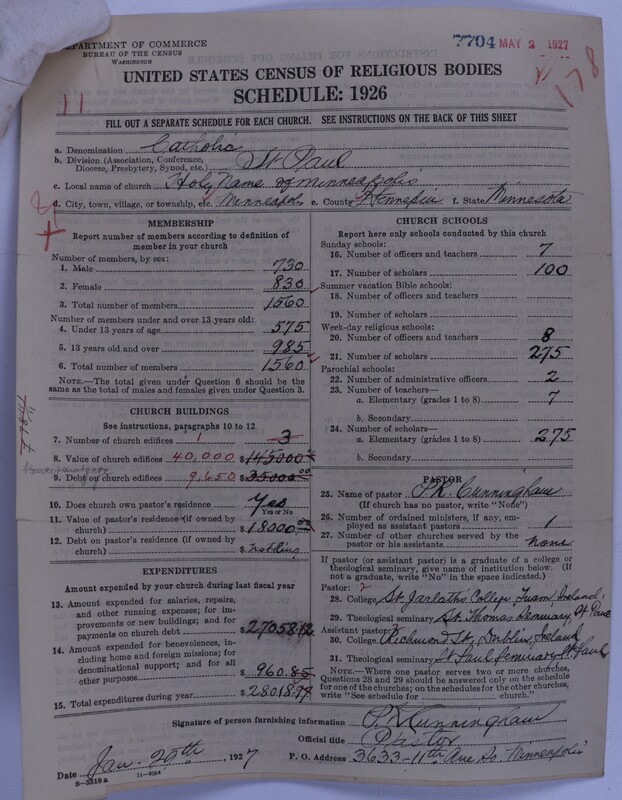 DEPARTMENT OF COMMERCE
BUREAU OF THE CENSUS
WASHINGTON
7704 MAY 2 1927
178
11
UNITED STATES CENSUS OF RELIGIOUS BODIES
SCHEDULE: 1926
FILL OUT A SEPARATE SCHEDULE FOR EACH CHURCH. SEE INSTRUCTIONS ON THE BACK OF THIS SHEET
a. Denomination Catholic
b. Division (Association, Conference, Diocese, Presbytery, Synod, etc.) St Paul
c. Local name of church Holy Name of Minneapolis
d. City, town, village, or township, etc. Minneapolis e. County Hennepin f. State Minnesota
MEMBERSHIP
Report number of members according to definition of
member in your church
Number of members, by sex:
1. Male 730
2. Female 830
3. Total number of members 1560
Number of members under and over 13 years old:
4. Under 13 years of age 575
5. 13 years old and over 985
6. Total number of members 1560
NOTE.—The total given under Question 6 should be
same as the total of males and females given under Question 3.
CHURCH BUILDINGS
See instructions, paragraphs 10 to 12
7. Number of church edifices 1 3
8. Value of church edifices 40,000 $145000.00
9. Debt on church edifices 9,650 $35000.00
10. Does church own pastor's residence Yes
Yes or No
11. Value of pastor's residence (if owned by
church) $18000.00
12. Debt on pastor's residence (if owned by
church) $nothing
EXPENDITURES
Amount expended by your church during last fiscal year
13. Amount expended for salaries, repairs,
and other running expenses; for im-
provements or new buildings; and for
payments on church debt $27058.12
14. Amount expended for benevolences, in-
cluding home and foreign missions; for
denominational support; and for all
other purposes $960.85
15. Total expenditures during year $28018.97
CHURCH SCHOOLS
Report here only schools conducted by this church
Sunday schools:
16. Number of officers and teachers 7
17. Number of scholars 100
Summer vacation Bible schools:
18. Number of officers and teachers
19. Number of scholars
Week-day religious schools:
20. Number of officers and teachers 8
21. Number of scholars 275
Parochial schools:
22. Number of administrative officers 2
23. Number of teachers—
a. Elementary (grades 1 to 8) 7
b. Secondary
24. Number of scholars—
a. Elementary (grades 1 to 8) 275
b. Secondary
PASTOR
25. Name of pastor P.R. Cunningham
(If church has no pastor, write "None")
26. Number of ordained ministers, if any, em-
ployed as assistant pastors 1
27. Number of other churches served by the
pastor or his assistants none
If pastor (or assistant pastor) is a graduate of a college or
theological seminary, give name of institution below. (If
not a graduate, write "No" in the space indicated.)
Pastor: 2
28. College St. Jarlaths College Tuam, Ireland,
29. Theological seminary St. Thomas Seminary, St Paul
Assistant pastor:
30. College Richmond St, Dublin, Ireland
31. Theological seminary St Paul Seminary St. Paul
NOTE.—Where one pastor serves two or more churches,
Questions 28 and 29 should be answered only on the schedule
for one of the churches; on the schedules for the other churches,
write "See schedule for church."
Signature of person furnishing information P. Cunningham
Official title Pastor
Date Jan. 29th, 1927
P. O. Address 3633-11th Ave So. Minneapolis
8-5518a 11-9094